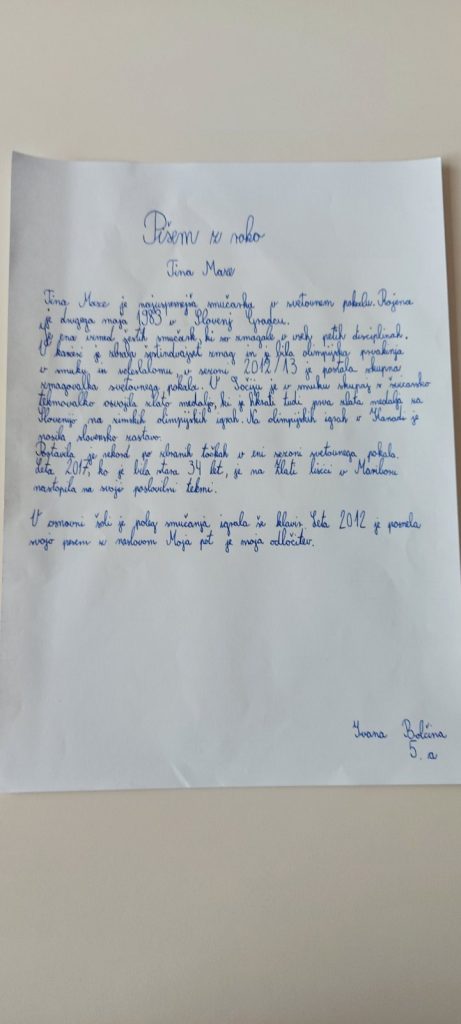 Pišem z roko
Tina Maze
Tina Maze je najuspešnejša smučarka v svetovnem pokalu. Rojena
je drugega maja 1983 v Slovenj Gradcu.
Je ena izmed šestih smučark, ki so zmagale v vseh petih disciplinah.
V karieri je zbrala šestindvajset zmag in je bila olimpijska prvakinja
v smuku in veleslalomu, v sezoni 2012/13 je postala skupna
zmagovalka svetovnega pokala. V Sočiju je v smuku skupaj s švicarsko
tekmovalko osvojila zlato medaljo, ki je hkrati tudi prva zlata medalja za
Slovenijo na zimskih olimpijskih igrah. Na olimpijskih igrah v Kanadi je
nosila slovensko zastavo.
Postavila je rekord po zbranih točkah v eni sezoni svetovnega pokala.
Leta 2017, ko je bila stara 34 let, je na Zlati lisici v Mariboru
nastopila na svoji poslovilni tekmi.
V osnovni šoli je poleg smučanja igrala še klavir. Leta 2012 je posnela
svojo pesem z naslovom Moja pot je moja odločitev.
Ivana Bolčina
5. a